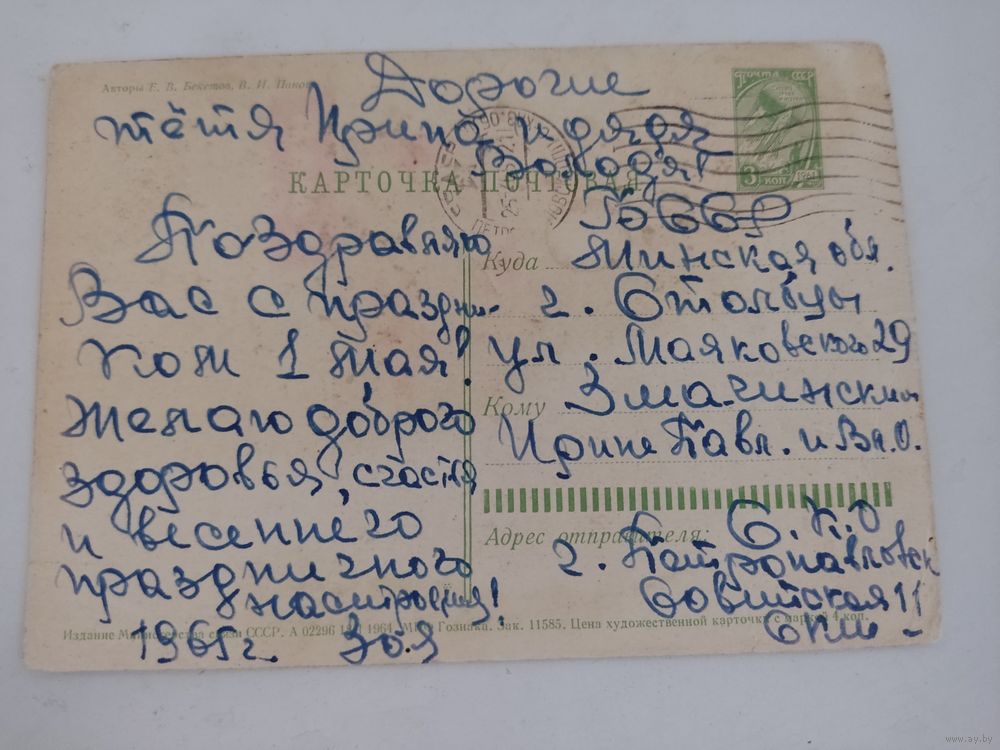 Авторы Е. В. Бекетов, В. И. Панов
Дорогие
тётя Ирина и дядя
Володя!
Поздравляю
Вас с праздни-
ком 1 Мая!
Желаю доброго
здоровья, счастья
и весеннего
праздничного
настроения!
1965г. Зоя
ПОЧТА СССР
3 КОП 1961
КАРТОЧКА ПОЧТОВАЯ
БССР
Куда Минская обл.
г. Столбцы
ул. Маяковского 29
Кому Змачинским
Ирине Павл. и Вл. О.
Адрес отправителя: С. К. О
г. Петропавловск
Советская 11
Издание Министерства связи СССР. А 02296 1964. МПФ Гознака. Зак. 11585. Цена художественной карточки с маркой 4 коп.
www.ay.by